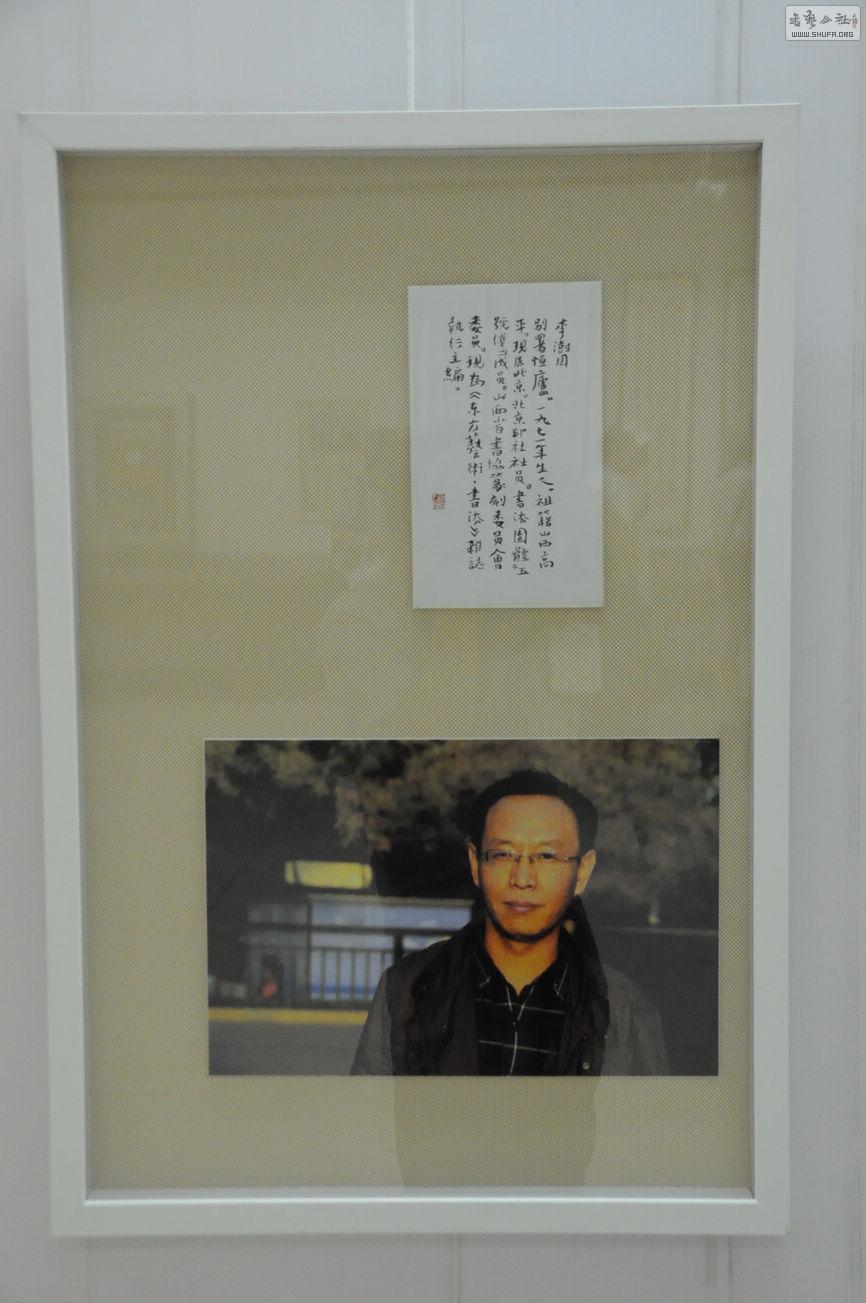 李澍周
别署恒廬。一九七一年生人。祖籍山西高
平。现居北京。北京印社社员。書法團體五
號俥成员。山西省書協篆刻委员會
委员。現為《东方藝術·書法》雜誌
執行主編。
書藝公社
WWW.SHUFA.ORG